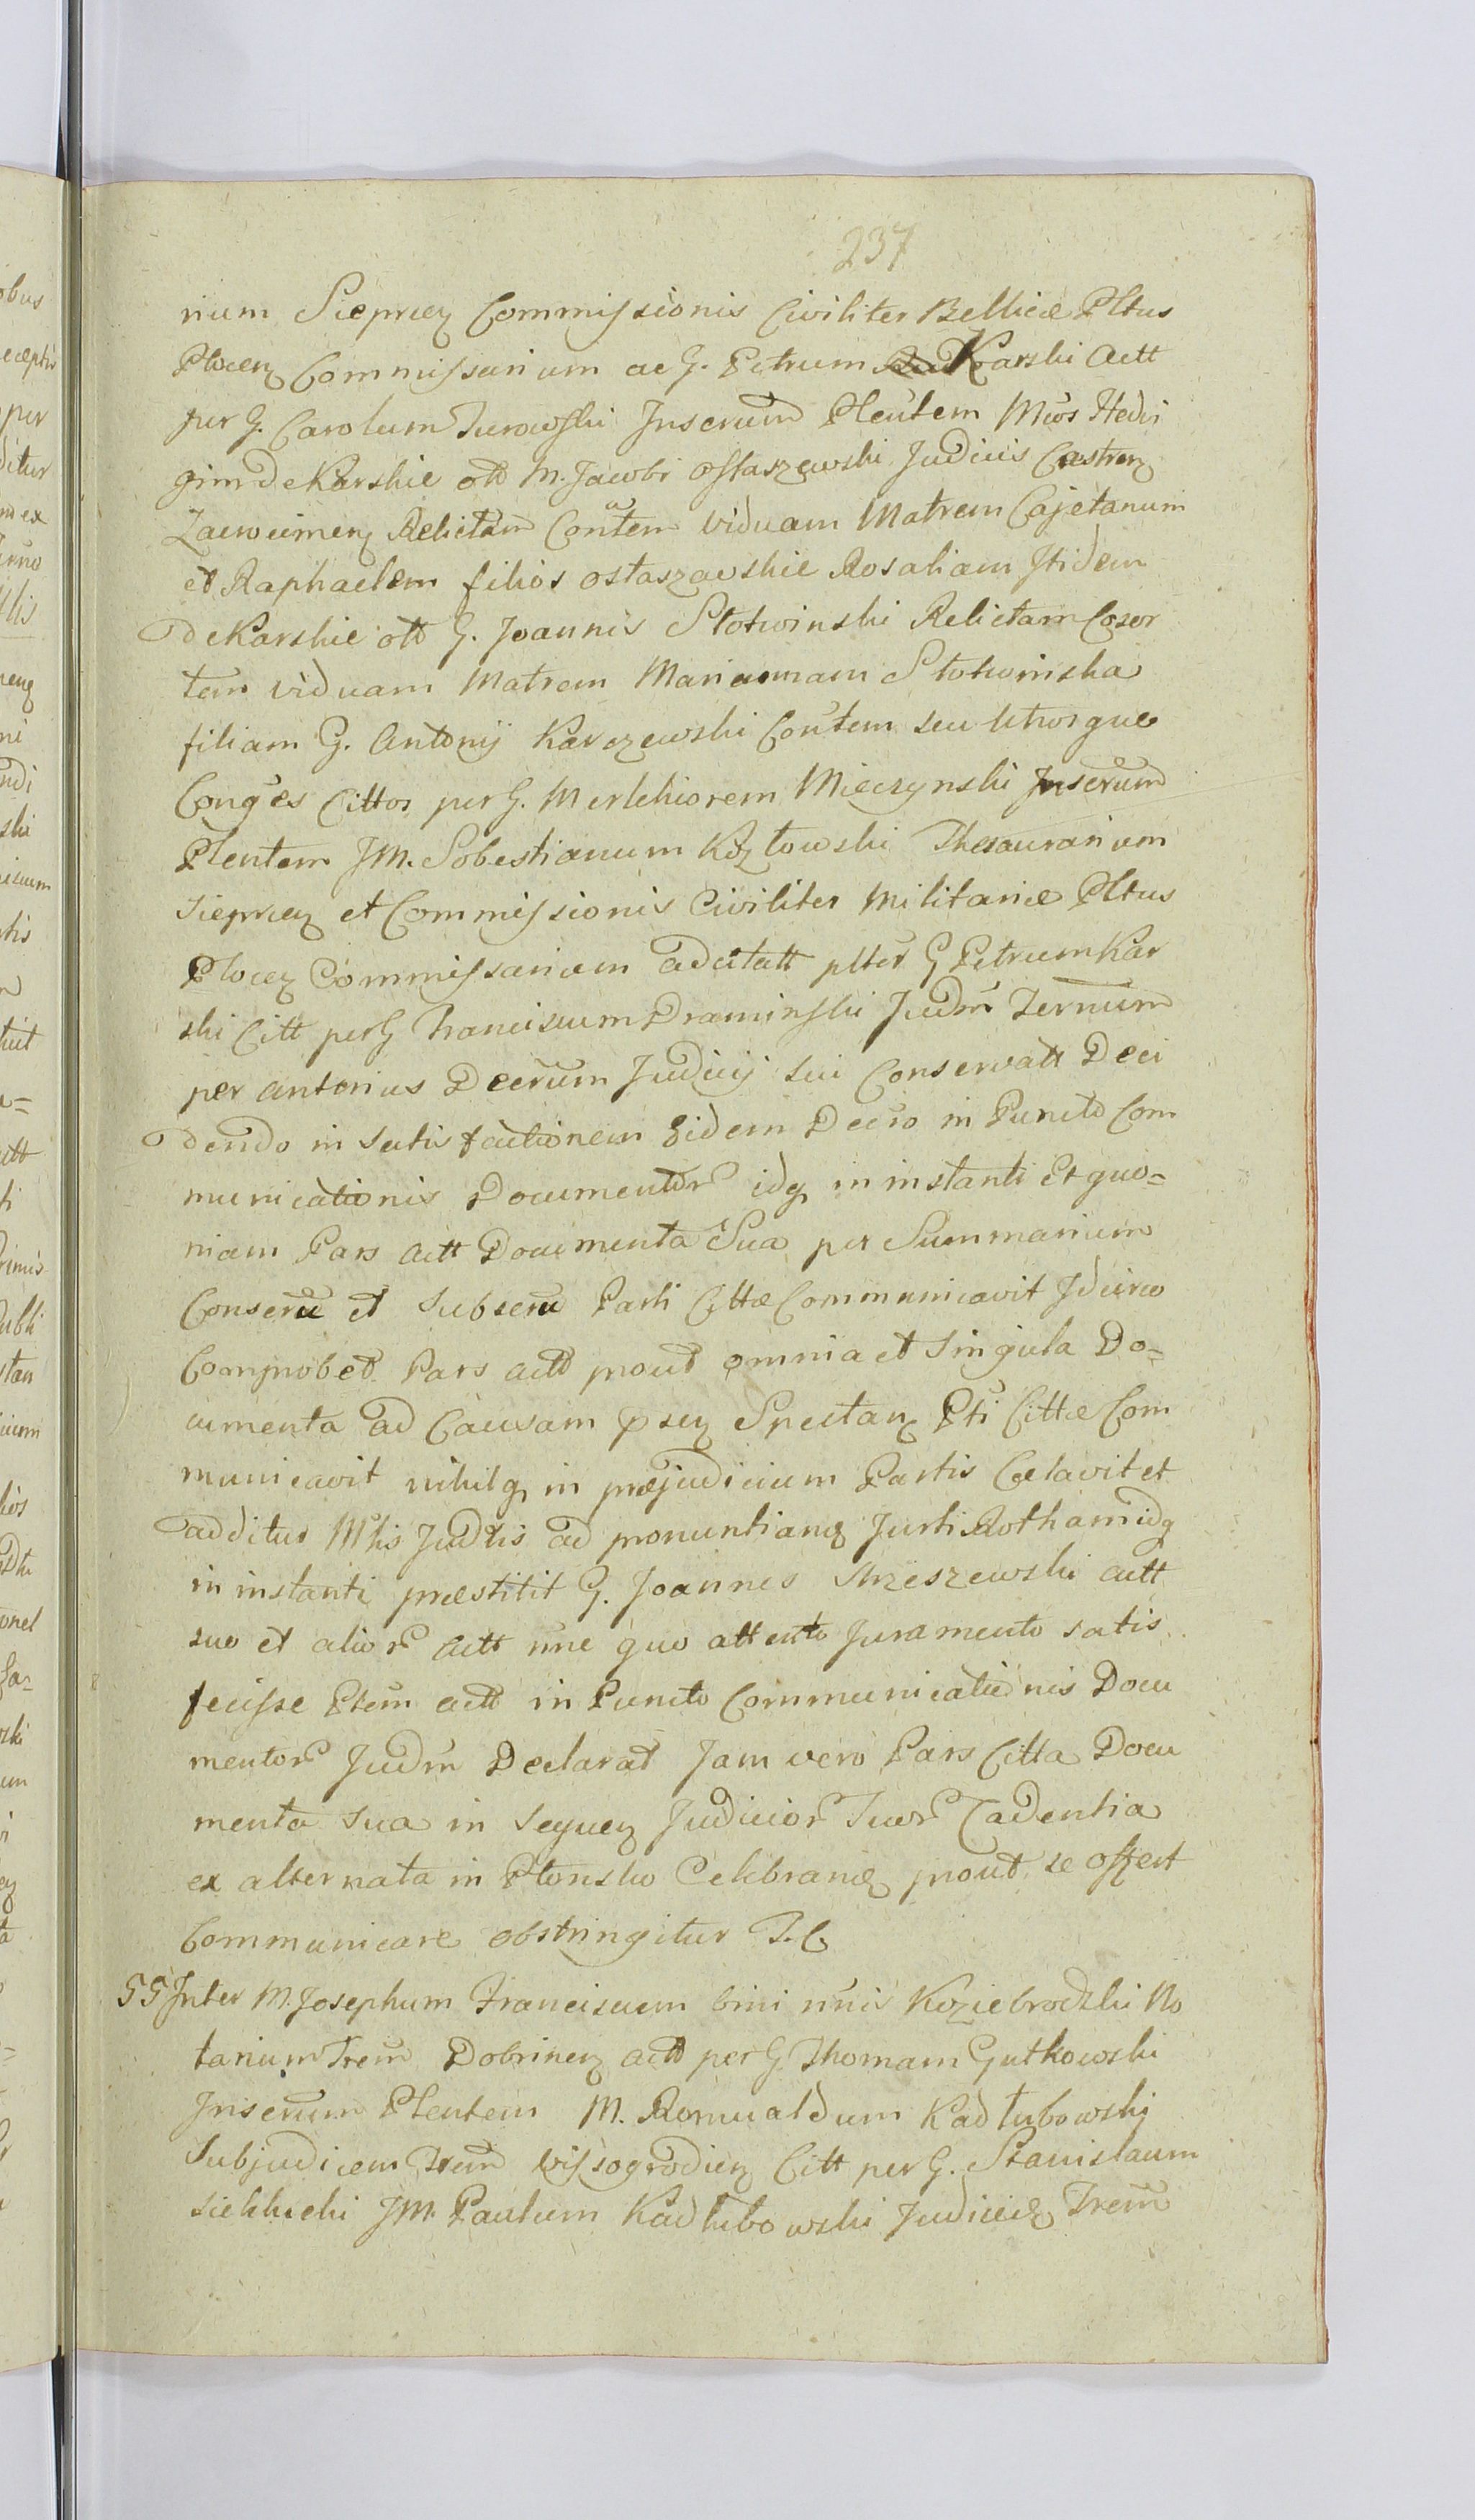 237
rium Sieprcen Commissionis Civiliter Bellicæ Pltus
Plocen Commissarium ac G. Petrum Karski Actt
per G. Carolum Turowski Inscrum Plentem Mcos Hedvi
gim de Karskie ott M. Jacobi Ostaszewski Judicis Castren
Zacroimen Relictam Contem viduam Matrem Cajetanum
et Raphaelem filios ostaszewskie Rosaliam Itidem
de Karskie ott G. Joannis Słotwinski Relictam Cosor
tem viduam Matrem Mariannam Słotwinska
filiam G. Antonij Karczewski Contem seu Utrosque
Conges Cittos per G. Merlchiorem Mieczynski Inscrum
Plentem JM. Sobestianum Kozłowski Thesaurarium
Sieprcen et Commissionis Civiliter Militariæ Pltus
Plocen Commissarium adcitatt plter G Petrum Kar
ski Citt per G Franciscum Draminski Judm Ternum
per anterius Decrum Judicij sui Conservatt Deci
dendo in Satisfactionem Eidem Decro in Puncto Com
municationis Documentor idq in instanti Et quo=
niam Pars Actt Documenta Sua per Summarium
Conscru et Subscru Parti Cittæ Communicavit Idcirco
Comprobet Pars actt prout omnia et Singula Do=
cumenta ad Causam psen Spectan Pti Cittæ Com
municavit nihilq in præjudicium Partis Celavit et
additur Mtis Judtis ad pronuntiand Jurti Rotham idq
in instanti præstitit G. Joannes Strzeszewski actt
suo et alior actt nne quo attento Juramento satis
fecisse Ptem actt in Puncto Communicationis Docu
mentor Judm Declarat Jam vero Pars Citta Docu
menta sua in Sequen Judicior Suor Cadentia
ex alternata in Płonsko Celebrand prout se offert
Communicare obstringitur P. C.
55 Inter M. Josephum Franciscum bini nnis Koziebrodzki No
tarium Trem Dobrinen actt per G. Thomam Gutkowski
Inscrum Plentem M. Romualdum Kadłubowski
Subjudicem Trem Vissogrodien Citt per G. Stanislaum
Siekłucki JM. Paulum Kadłubowski Judicid Trem